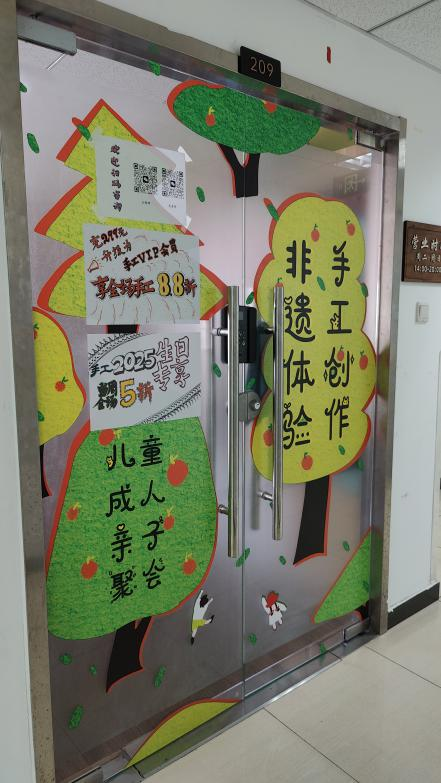 209
欢迎扫码咨询
充299元
升级为
手工VIP会员
享全场手工8.8折
手工2025生日
专享
5折
儿童
成人
亲子
聚会
手工创作
非遗体验
营业时
周二-周
14:00-20:00